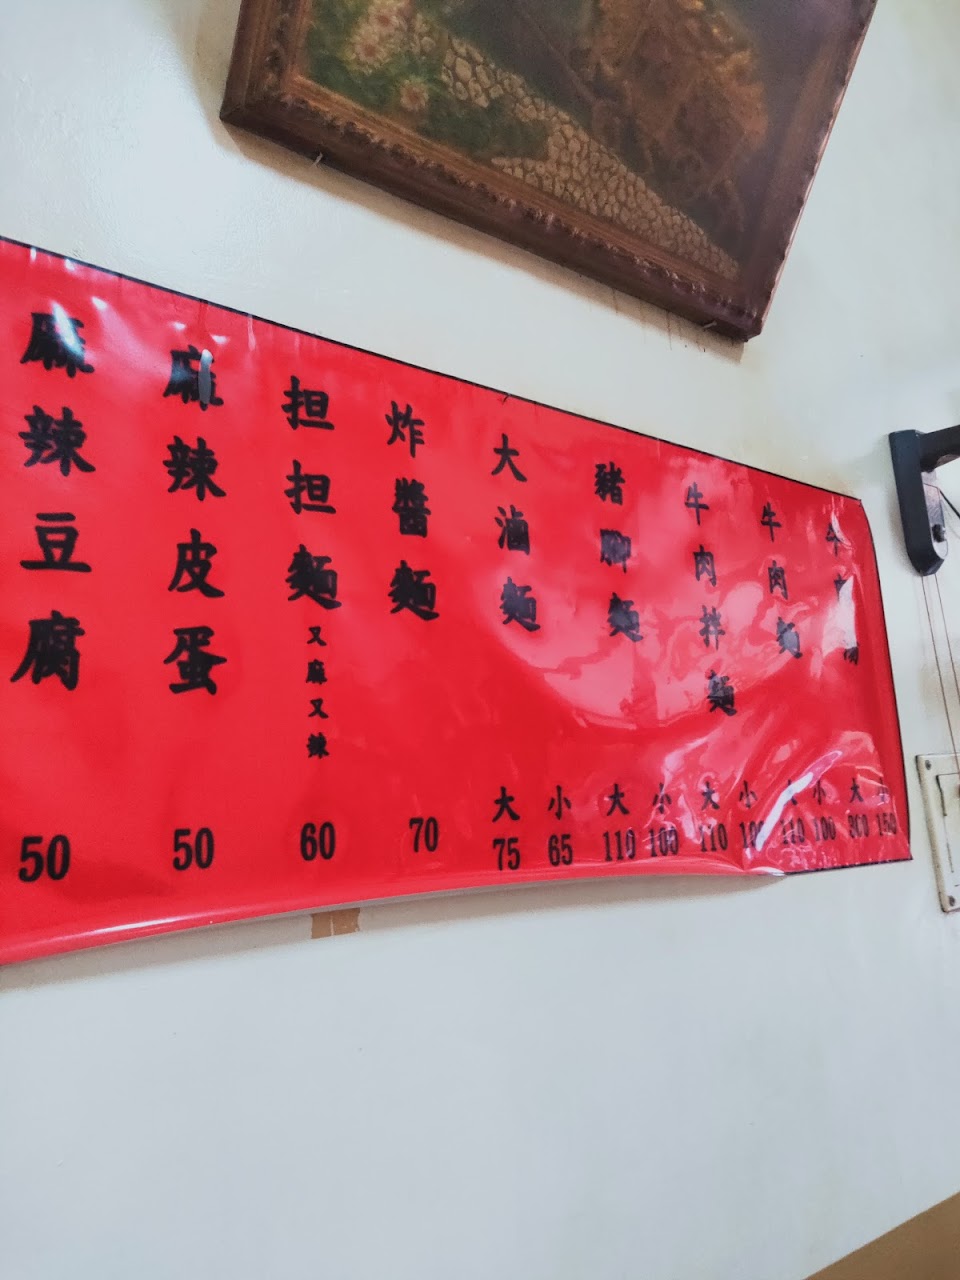 牛肉湯
大 小
150
牛肉麵
大 小
110 100
牛肉拌麵
大 小
110 100
豬腳麵
大 小
110 100
大滷麵
大 小
75 65
炸醬麵
70
担担麵 又麻又辣
60
麻辣皮蛋
50
麻辣豆腐
50